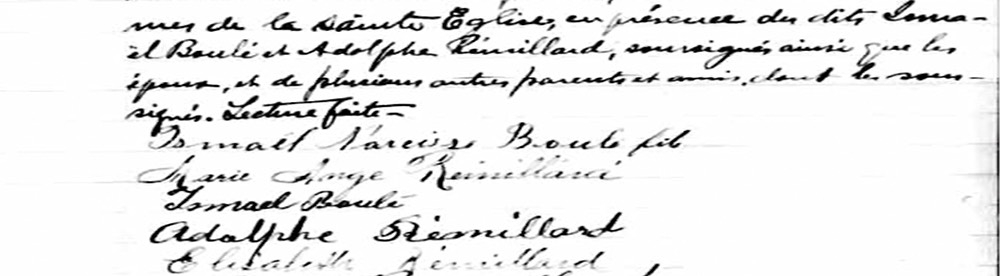 mes de la Sainte Eglise, en présence des dits Isma-
ël Boulé et Adolphe Rémillard, soussignés ainsi que les
époux, et de plusieurs autres parents et amis, dont les sous-
signés. Lecture faite -
Ismaël Narcisse Boulé fils
Marie Ange Rémillard
Ismael Boulé
Adolphe Rémillard
Elisabeth Rémillard